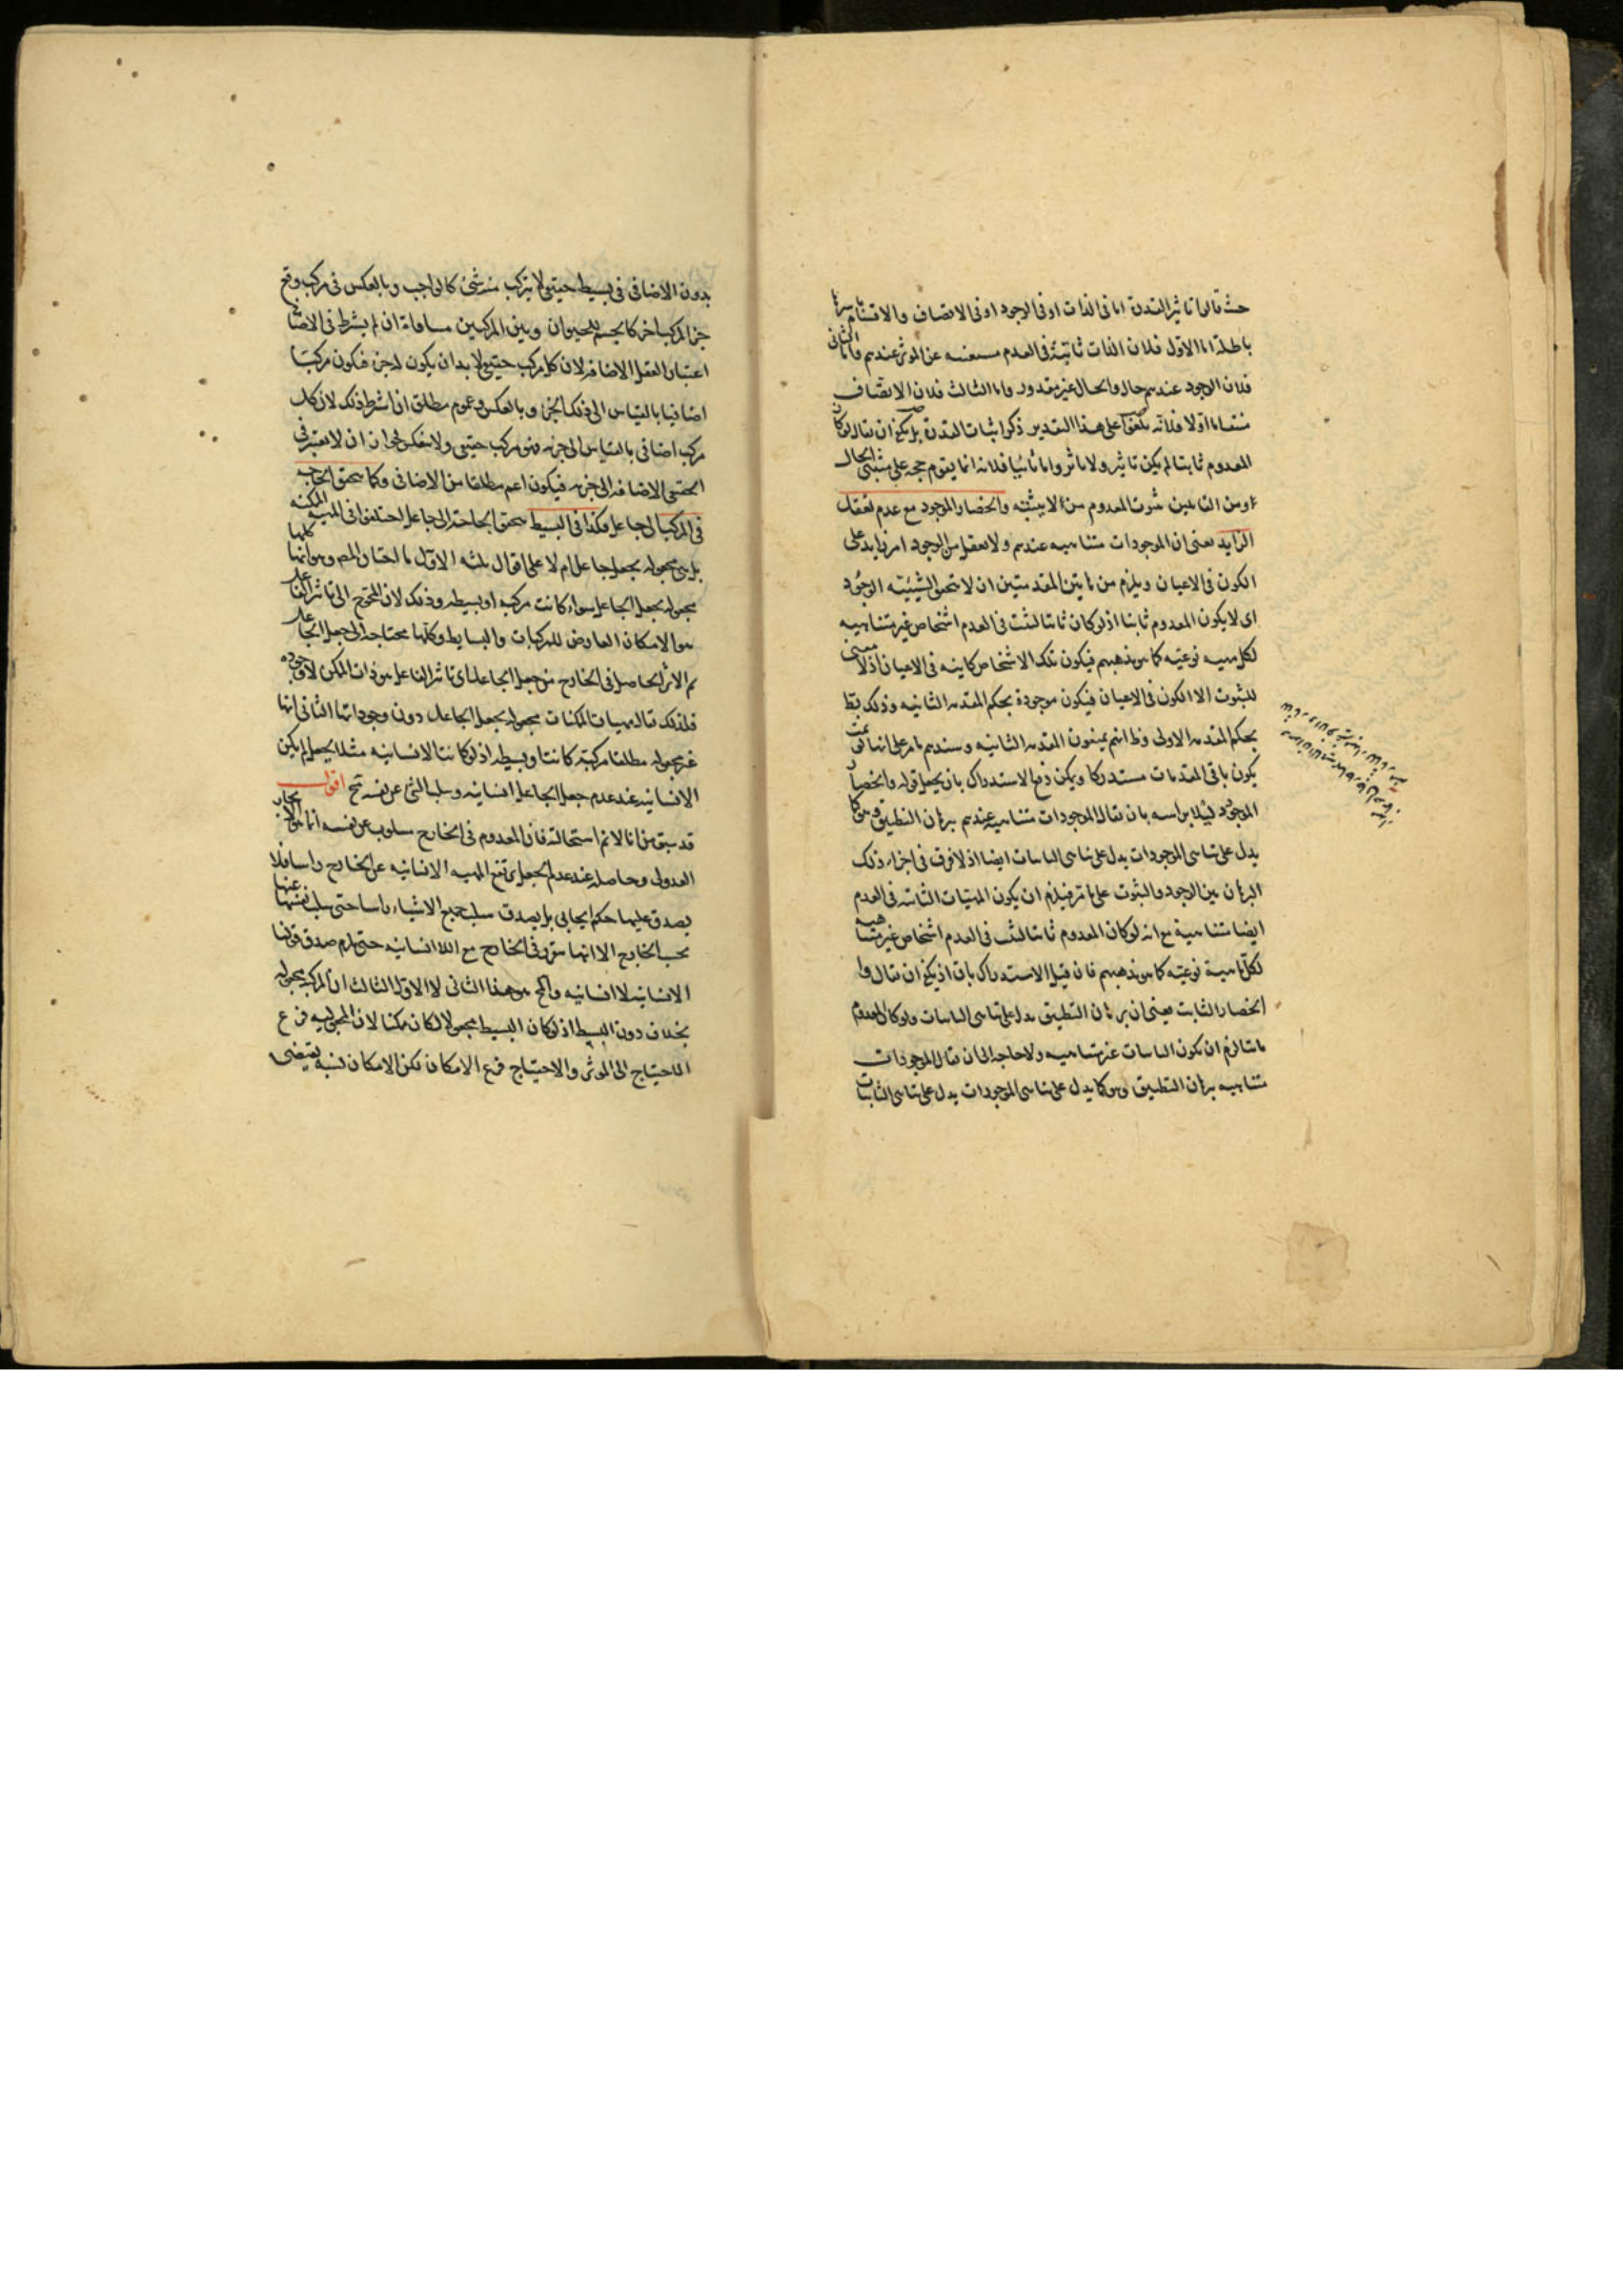 حيث قالوا تاثير القدرة اما فى الذات او فى الوجود او فى الاتصاف والاقسام باسرها
باطلة اما الاول فلان الذات ثابتة فى العدم مستغنيه عن الموثر عندهم واما الثانى
فلان الوجود عندهم حال والحال غير مقدور واما الثالث فلان الاتصاف
منتف اما اولا فلانه على هذا التقدير ذكر اثبات القدرة بل يكفى ان يقال لو كان
المعدوم ثابتا لم يكن تاثير ولا تاثر واما ثانيا فلانه انما يقوم حجه على مثبتى الحال
ومن القائلين بثبوت المعدوم وانحصار الموجود مع عدم تعقل
الزايد يعنى ان الموجودات متناهيه عندهم ولا يعقل من الوجود امر زايد على
الكون فى الاعيان ويلزم من هاتين المقدمتين ان لا تحقق الشيئيه الوجود
اى لا يكون المعدوم ثابتا اذ لو كان ثابتا لثبت فى العدم اشخاص غير متناهيه
لكل مهيه نوعيه كما هو مذهبهم فيكون تلك الاشخاص كاينه فى الاعيان اذ لا معنى
للثبوت الا الكون فى الاعيان فيكون موجودة بحكم المقدمه الثانيه وذلك بط
بحكم المقدمه الاولى وظ انهم يمنعون المقدمه الثانيه وسندهم ما مر على انها تمت
يكون باقى المقدمات مستدركا ويمكن دفع الاستدراك بان يجعل قوله وانحصار
الموجود دليلا براسه بان يقال الموجودات متناهيه عندهم ببرهان التطبيق وهو كما
يدل على تناهى الموجودات يدل على تناهى الثابتات ايضا اذ لا فرق فى اجراء ذلك
البرهان بين الوجود والثبوت على ما مر فيلزم ان يكون المهيات الثابته فى العدم
ايضا متناهية مع انه لو كان المعدوم ثابتا لثبت فى العدم اشخاص غير متناهيه
لكل ماهية نوعيه كما هو مذهبهم فان قيل الاستدراك باق اذ يكفى ان يقال
انحصار الثابت يعنى ان برهان التطبيق يدل على تناهى الثابتات ولو كان المعدوم
ثابتا لزم ان يكون الثابتات غير متناهيه ولا حاجه الى ان يقال الموجودات
متناهيه ببرهان التطبيق وهو كما يدل على تناهى الموجودات يدل على تناهى الثابتات
بدون الاضافى فى بسيط حقيقى لا يتركب منه شئ كالواجب وبالعكس فى مركب وقع
جزء المركب اخر كالجسم للحيوان وبين المركبين مساواة ان لم يشترط فى الاضافى
اعتبار العقل الاضافه لان كل مركب حقيقى لا بد ان يكون له جزء فيكون مركبا
اضافيا بالقياس الى ذلك الجزء وبالعكس وعموم مطلق ان اشترط ذلك لان كل
مركب اضافى بالقياس الى جزئه فهو مركب حقيقى ولا ينعكس لجواز ان لا يعتبر فى
الحقيقى الاضافه الى جزئه فيكون اعم مطلقا من الاضافى وكما يتحقق الحاجه
فى المركب الى جاعل فكذا فى البسيط يتحقق الحاجة الى جاعل اختلفوا فى المهيه الممكنه
بل هى مجعوله بجعل جاعل ام لا على اقوال ثلثه الاول ما اختاره المص وهو انها كلها
مجعوله بجعل الجاعل سواء كانت مركبه او بسيطه وذلك لان المحوج الى تاثير الفاعل
هو الامكان العارض للمركبات والبسايط وكلها محتاجه الى جعل الجاعل
ثم الاثر الحاصل فى الخارج من جعل الجاعل اى تاثير الفاعل هو ذات الممكن لا وجوده
فلذلك قال مهيات الممكنات مجعوله بجعل الجاعل دون وجوداتها الثانى انها
غير مجعوله مطلقا مركبة كانت او بسيطه اذ لو كانت الانسانيه مثلا بجعل لم يكن
الانسانيه عند عدم جعل الجاعل انسانيه وسلب الشئ عن نفسه مح اقول
قد سبق منا انا لا نم استحالته فان المعدوم فى الخارج مسلوب عن نفسه انما المحال الايجاب
العدولى وحاصله عند عدم الجعل يرتفع المهيه الانسانيه عن الخارج راسا فلا
يصدق عليها حكم ايجابى بل يصدق سلب جميع الاشياء راسا حتى سلب نفسها عنها
بحسب الخارج لا انها يتقرر فى الخارج مع اللاانسانيه حتى يلزم صدق قولنا
الانسانيه لا انسانيه والمح هو هذا الثانى لا الاول الثالث ان المركبه مجعوله
بخلاف دون البسيط اذ لو كان البسيط مجعولا لكان ممكنا لان المجعوليه فرع
الاحتياج الى الموثر والاحتياج فرع الامكان لكن الامكان نسبه يقتضى